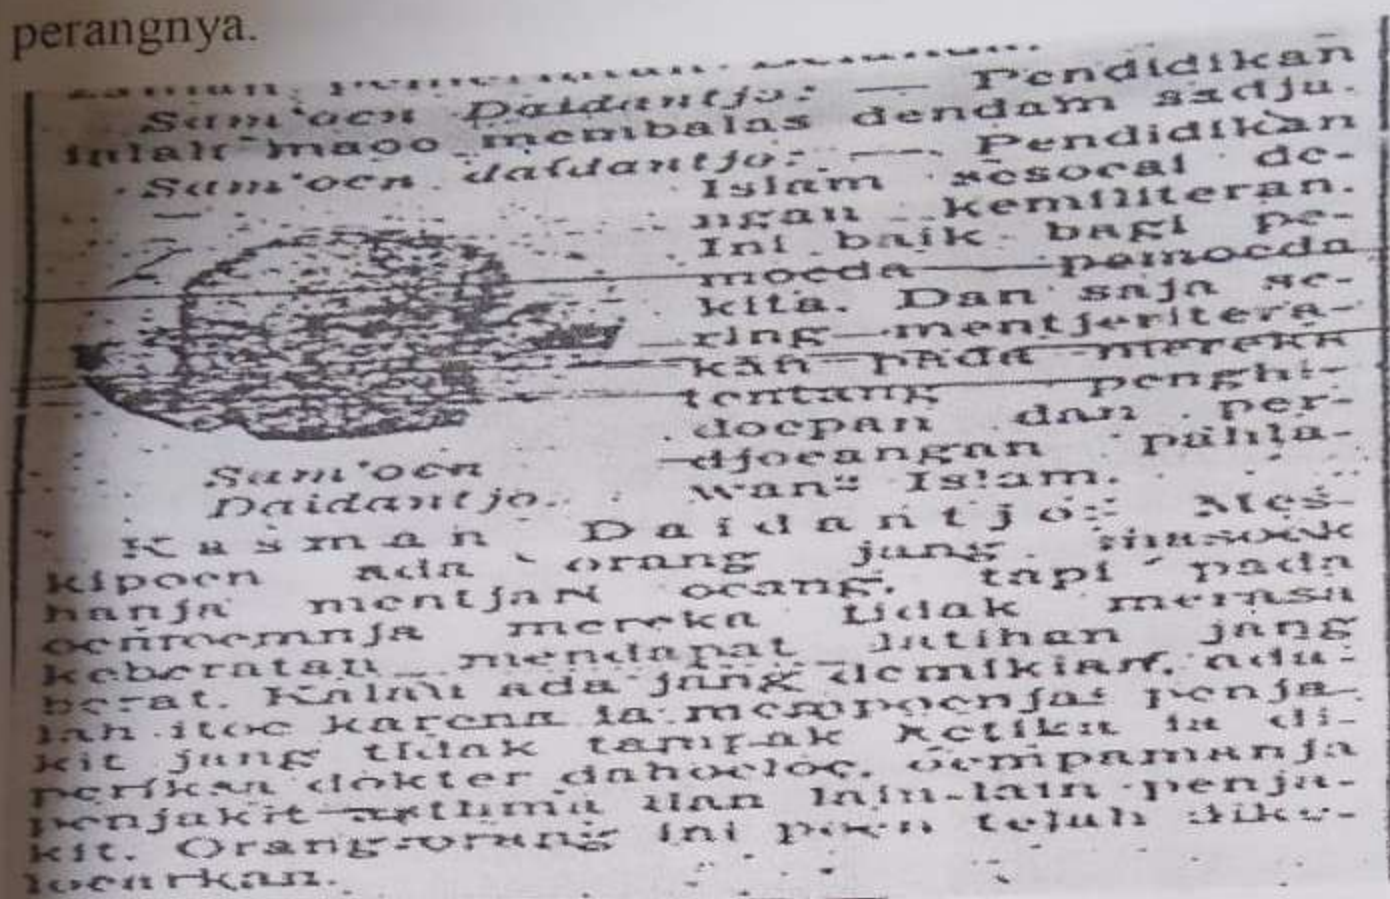 perangnya.
Sam'oen Daidantjo: — Pendidikan
inlah maoo membalas dendam sadju.
Sam'oen daidantjo: — Pendidikan
Islam sesoeai de-
ngan kemiliteran.
Ini baik bagi pe-
moeda — pemoeda
kita. Dan saja se-
ring mentjeritera-
kan pada mereka
tentang penghi-
doepan dan per-
djoeangan pahla-
wan² Islam.
Sam'oen
Daidantjo.
Kasman Daidantjo: Mes-
kipoen ada orang jang masoek
hanja mentjari oeang, tapi pada
oemoemnja mereka tidak merasa
keberatan mendapat latihan jang
berat. Kalau ada jang demikian, ada-
lah itoe karena ia mempoenjai penja-
kit jang tidak tampak ketika ia di-
periksa dokter dahoeloe, oempamanja
penjakit asthma dan lain-lain penja-
kit. Orang-orang ini poen telah dike-
loearkan.